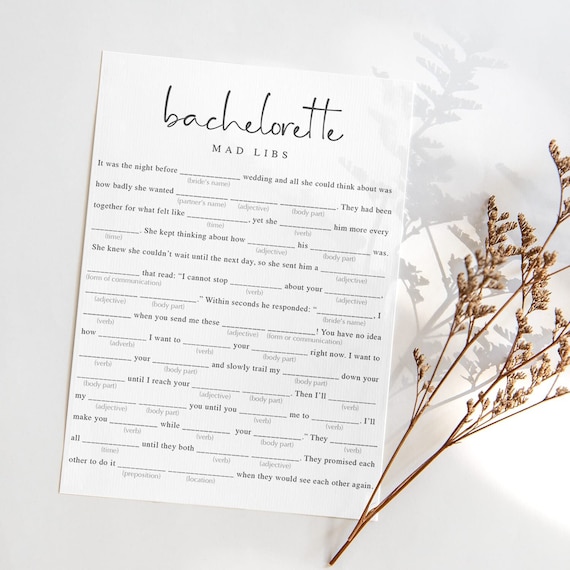 bachelorette
MAD LIBS
It was the night before ____________ wedding and all she could think about was
(bride's name)
how badly she wanted ____________ ____________ ____________. They had been
(partner's name) (adjective) (body part)
together for what felt like ____________, yet she ____________ him more every
(time) (verb)
____________. She kept thinking about how ____________ his ____________ was.
(time) (adjective) (body part)
She knew she couldn't wait until the next day, so she sent him a ____________
____________ that read: "I cannot stop ____________ about your ____________,
(form of communication) (verb) (adjective)
____________ ____________." Within seconds he responded: "____________, I
(adjective) (body part) (bride's name)
____________ when you send me these ____________ ____________! You have no idea
(verb) (adjective) (form of communication)
how ____________ I want to ____________ your ____________ right now. I want to
(adverb) (verb) (body part)
____________ your ____________ and slowly trail my ____________ down your
(verb) (body part) (body part)
____________ until I reach your ____________ ____________. Then I'll ____________
(body part) (adjective) (body part) (verb)
my ____________ ____________ you until you ____________ me to ____________. I'll
(adjective) (body part) (verb) (verb)
make you ____________ while ____________ your ____________." They ____________
(verb) (verb) (body part) (verb)
all ____________ until they both ____________ ____________. They promised each
(time) (verb) (adjective)
other to do it ____________ ____________ when they would see each other again.
(preposition) (location)